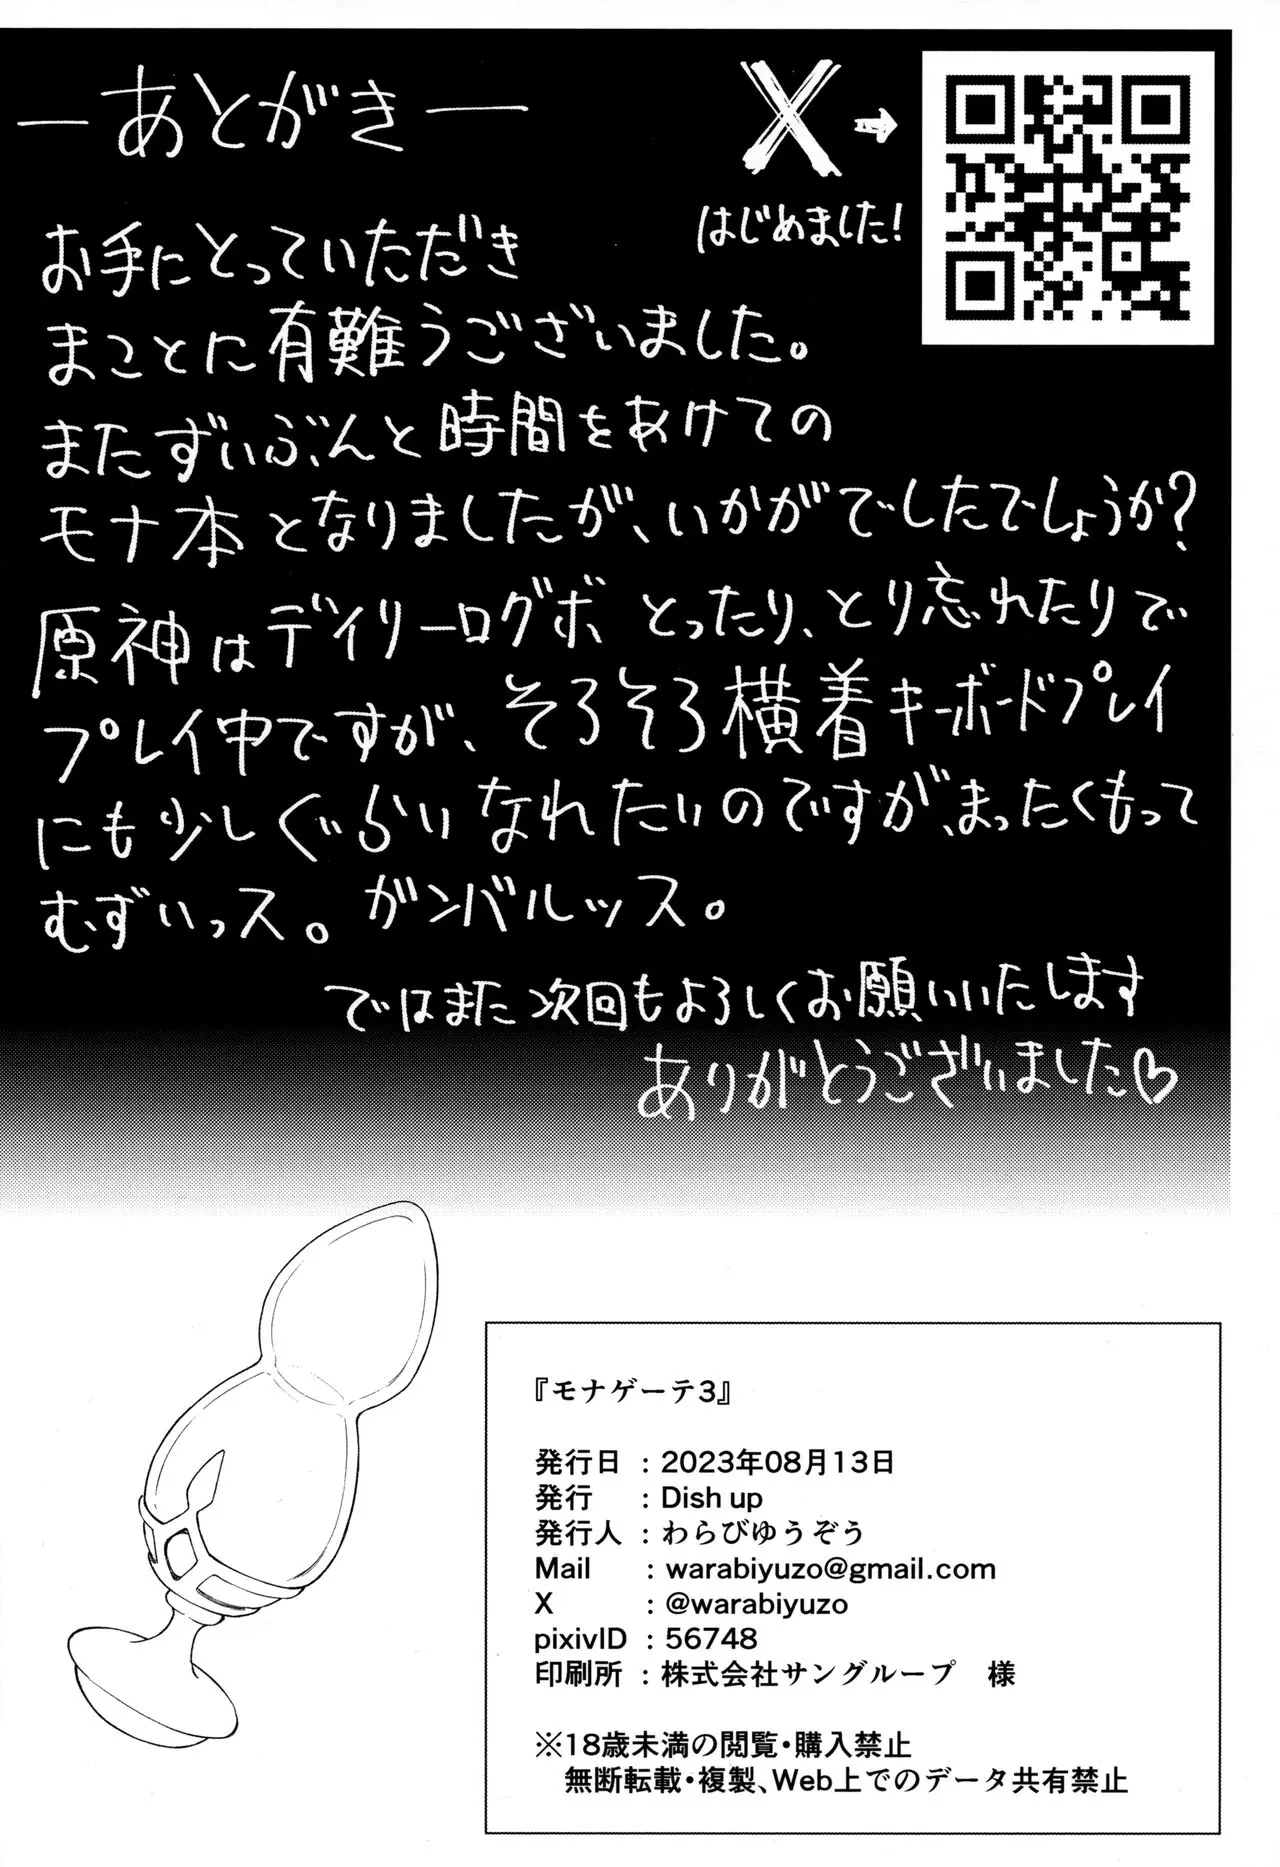 ―あとがき―
X→
はじめました!
お手にとっていただき
まことに有難うございました。
またずいぶんと時間をあけての
モナ本となりましたが、いかがでしたでしょうか?
原神はデイリーログボとったり、とり忘れたりで
プレイ中ですが、そろそろ横着キーボードプレイ
にも少しぐらいなれたいのですが、まったくもって
むずいっス。ガンバルッス。
ではまた次回もよろしくお願いいたします
ありがとうございました♡
『モナゲーテ3』
発行日 : 2023年08月13日
発行 : Dish up
発行人 : わらびゆうぞう
Mail : warabiyuzo@gmail.com
X : @warabiyuzo
pixivID : 56748
印刷所 : 株式会社サングループ 様
※18歳未満の閲覧・購入禁止
無断転載・複製、Web上でのデータ共有禁止